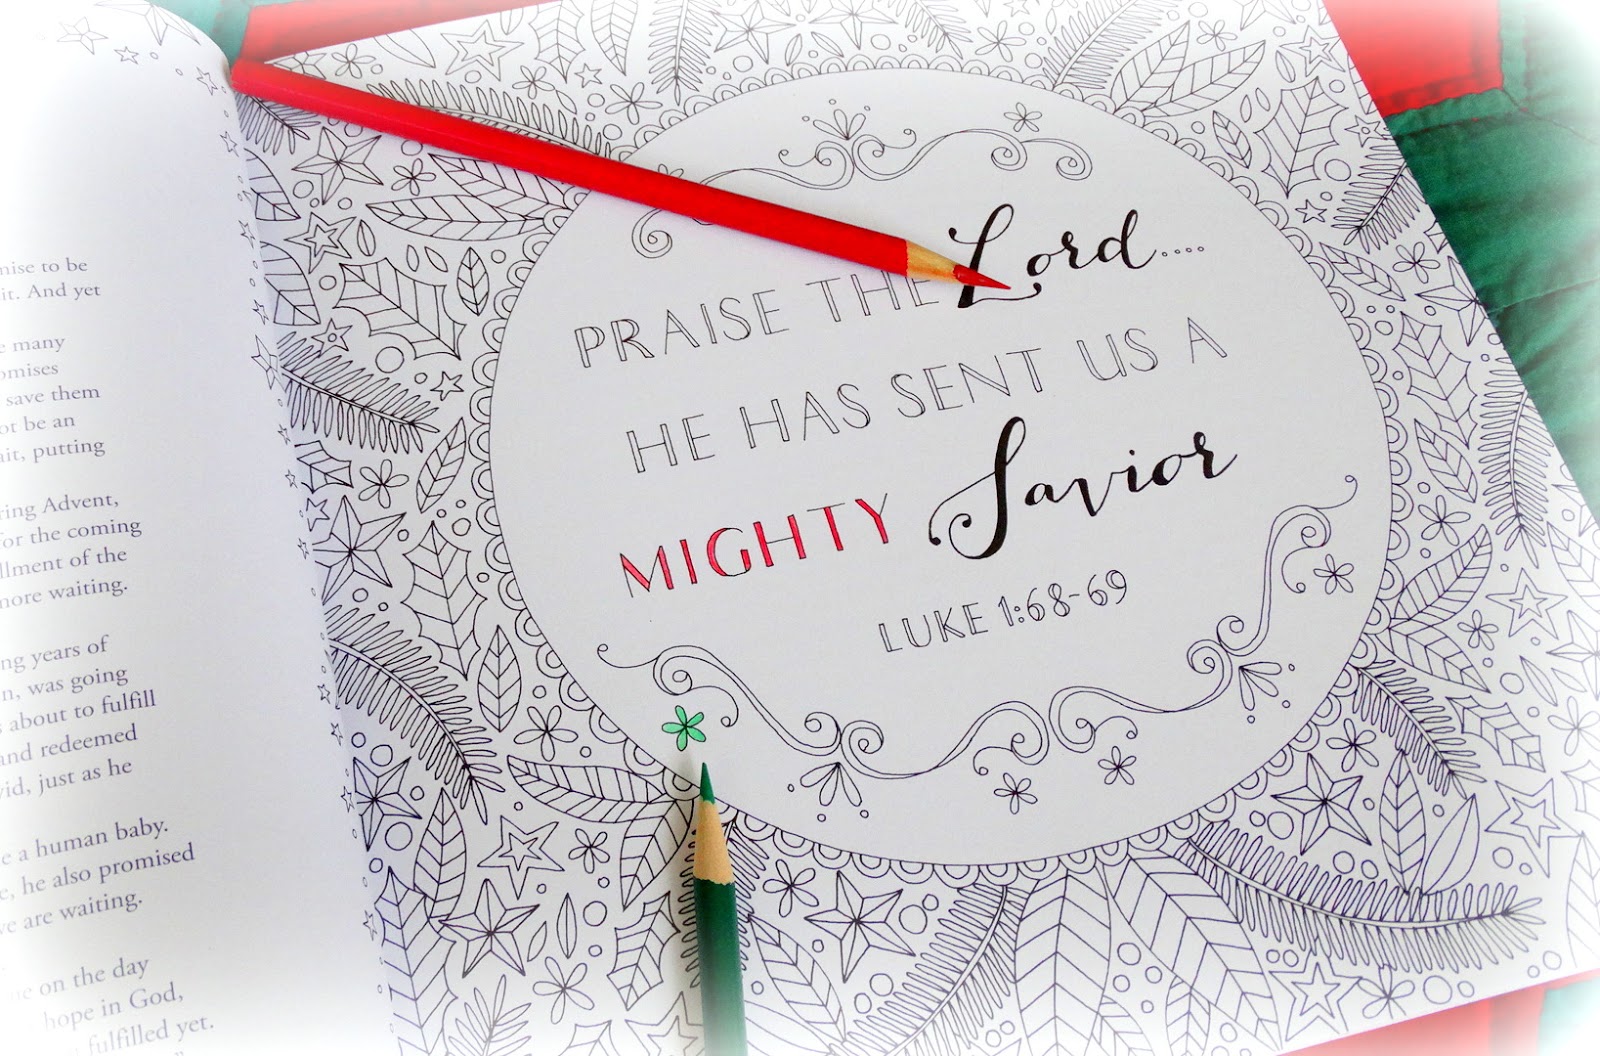 mise to be
it. And yet
many
omises
save them
ot be an
ait, putting
ring Advent,
for the coming
llment of the
more waiting.
ng years of
n, was going
about to fulfill
and redeemed
vid, just as he
e a human baby.
e, he also promised
ve are waiting.
ne on the day
hope in God,
fulfilled yet.
PRAISE THE Lord....
HE HAS SENT US A
MIGHTY Savior
LUKE 1:68-69